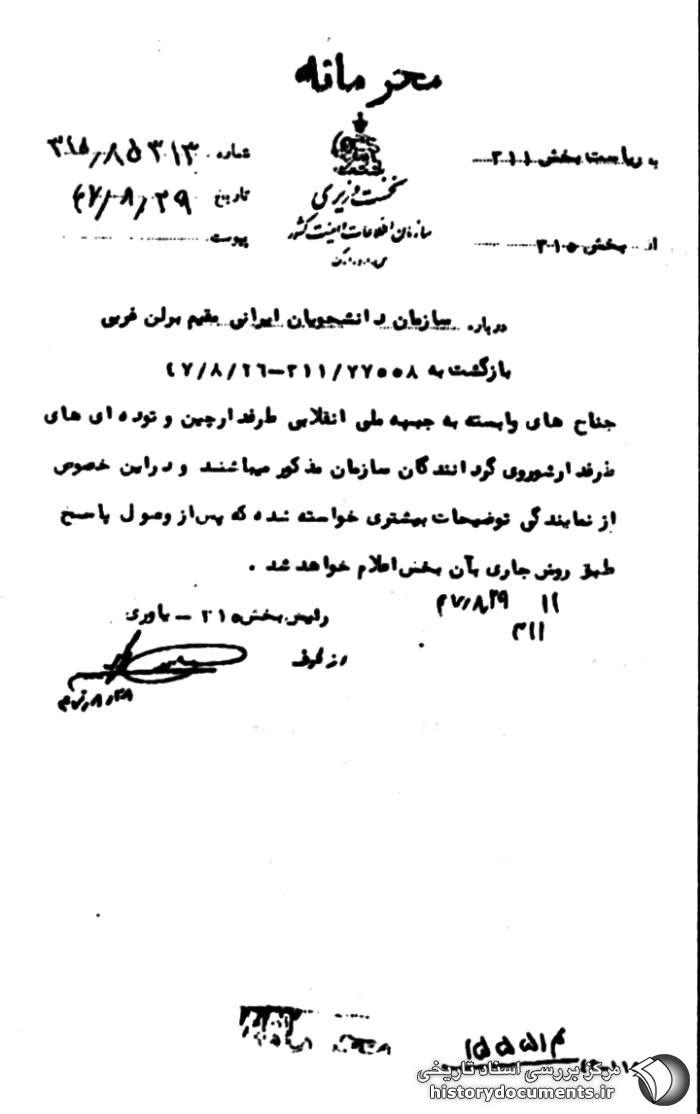 محرمانه
به ریاست بخش ۳۱۱
نخست وزیری
شماره ۳۱۵/۸۵۳۱۳
تاریخ ۴۷/۸/۲۹
سازمان اطلاعات و امنیت کشور
س . ا . و . ا . ک
از بخش ۳۱۵
پیوست
درباره سازمان دانشجویان ایرانی مقیم برلن غربی
بازگشت به ۳۱۱/۲۷۰۰۸-۴۷/۸/۲۶
جناح های وابسته به جبهه ملی انقلابی طرفدار چین و توده ای های
طرفدار شوروی گردانندگان سازمان مذکور میباشند و در این خصوص
از نمایندگی توضیحات بیشتری خواسته شده که پس از وصول پاسخ
طبق روش جاری بآن بخش اعلام خواهد شد .
۴۷/۸/۲۹
رئیس بخش ۳۱۵ - یاوری
از طرف
۴۷/۸/۲۸
مرکز بررسی اسناد تاریخی
historydocuments.ir